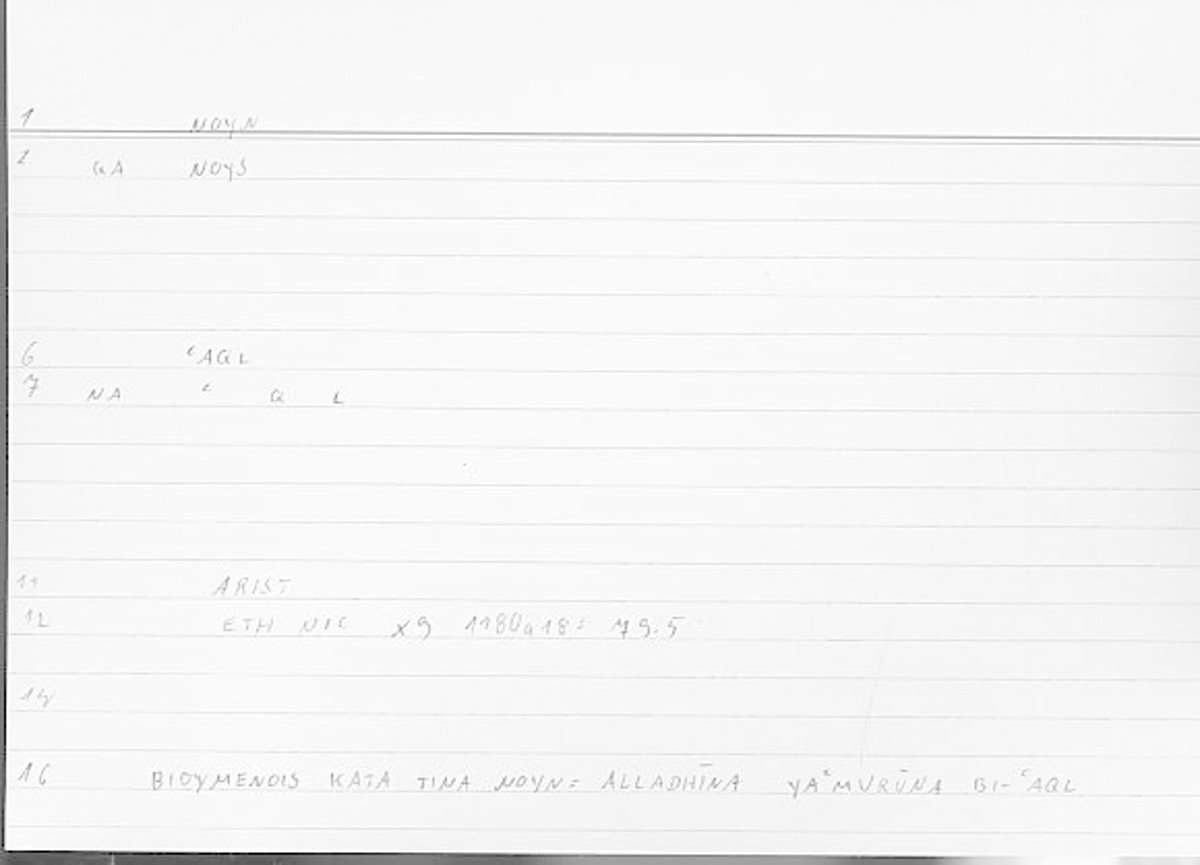 1 NOYN
2 QA NOYS
6 ʿAQL
7 NA ʿ Q L
11 ARIST
12 ETH NIC X9 1180a18: 79.5
14
16 BIOYMENOIS KATA TINA NOYN: ALLADHĪNA YAʿMURŪNA BI-ʿAQL